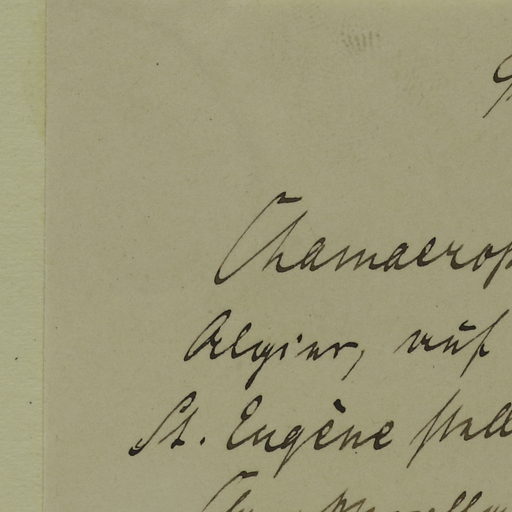 Chamaerop
Algier, auf
St. Eugène stell